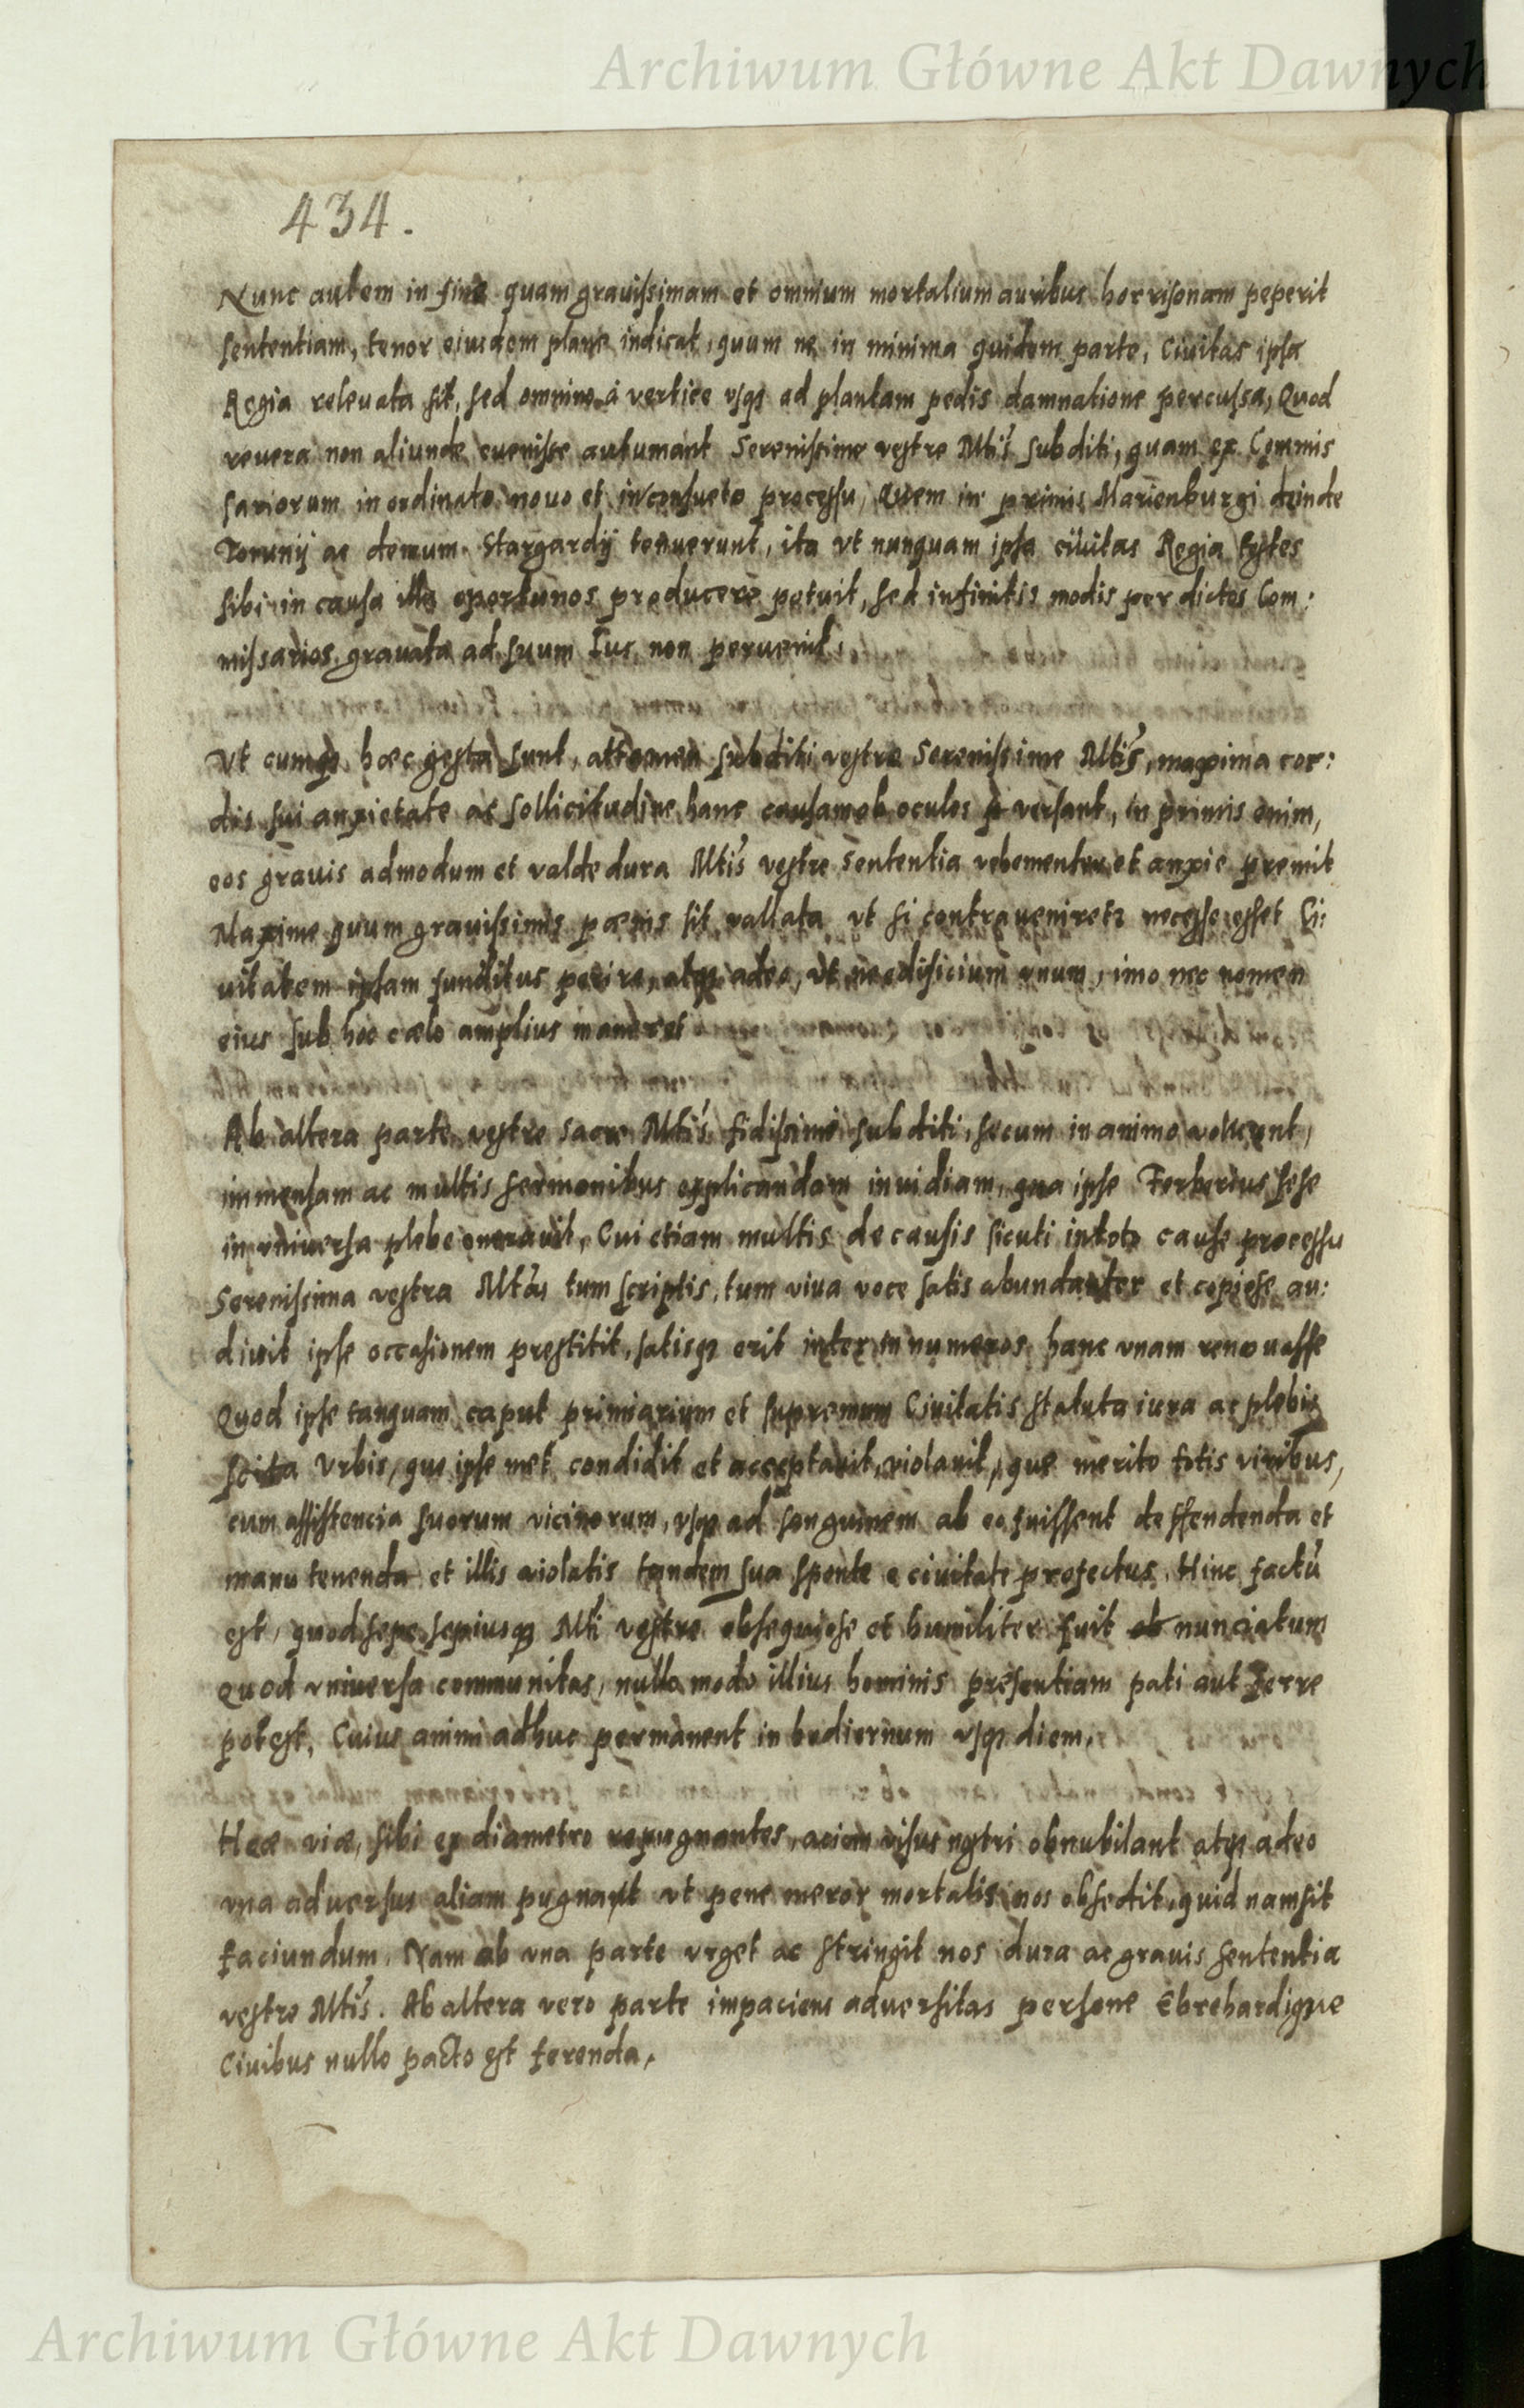 Archiwum Główne Akt Dawnych
434.
Nunc autem in fine quam grauissimam et omnium mortalium auribus horrisonam peperit
sententiam, tenor eiusdem plane indicat, quum ne in minima quidem parte, Ciuitas ipsa
Regia releuata sit, sed omnino à vertice vsq3 ad plantam pedis damnatione percussa, Quod
reuera non aliunde euenisse autumant Serenissime vestre Mtis subditi, quam ex Commis
sariorum inordinato nouo et inconsueto processu, Quem in primis Marienburgi deinde
Torunij ac demum Stargardij tenuerunt, ita vt nunquam ipsa ciuitas Regia testes
sibi in causa illa oportunos producere potuit, sed infinitis modis per dictos Com:
missarios grauata ad suum Ius non peruenit,
Vt cumq3 hæc gesta sunt, attamen subditi vestre Serenissime Mtis, maxima cor:
dis sui anxietate ac sollicitudine hanc causam ob oculos versant, in primis enim,
eos grauis admodum et valde dura Mtis vestre Sententia vehementer et anxie premit
Maxime quum grauissimis pœnis sit vallata vt si contraueniretr necesse esset Ci:
uitatem ipsam funditus perire, atq3 adeo, vt nec edificium vnum, imo nec nomen
eius sub hoc cælo amplius maneret
Ab altera parte vestre sacre Mtis fidissimi subditi, secum in animo voluunt,
immensam ac multis sermonibus explicandam inuidiam, qua ipse Ferberius sese
in vniuersa plebe onerauit, Cui etiam multis de causis sicuti in toto cause processu
Serenissima vestra Mtas tum scriptis, tum viua voce satis abundanter et copiose au:
diuit ipse occasionem prestitit, satisq3 erit inter innumeros hanc vnam renouasse
Quod ipse tanquam caput primarium et supremum Ciuitatis statuta iura ac plebis
scita Vrbis, que ipse met condidit et acceptauit, violauit, que merito totis viribus,
cum assistencia suorum vicinorum, vsq3 ad sanguinem ab eo fuissent deffendenda et
manu tenenda et illis violatis tandem sua sponte e ciuitate profectus. Hinc factū
est, quod sepe sepiusq3 Mti vestre obsequiose et humiliter fuit nunciatum
Quod vniuersa communitas, nullo modo illius hominis presentiam pati aut ferre
potest, Cuius animi adhuc permanent in hodiernum vsq3 diem,
Heæ viæ, sibi ex diametro repugnantes, aciem visus nostri obnubilant atq3 adeo
vna aduersus aliam pugnant vt pene meror mortalis nos obsedit, quid nam sit
faciundum. Nam ab vna parte vrget ac stringit nos dura ac grauis sententia
vestre Mtis. Ab altera vero parte impaciens aduersitas persone Ebrehardique
Ciuibus nullo pacto est ferenda,
Archiwum Główne Akt Dawnych